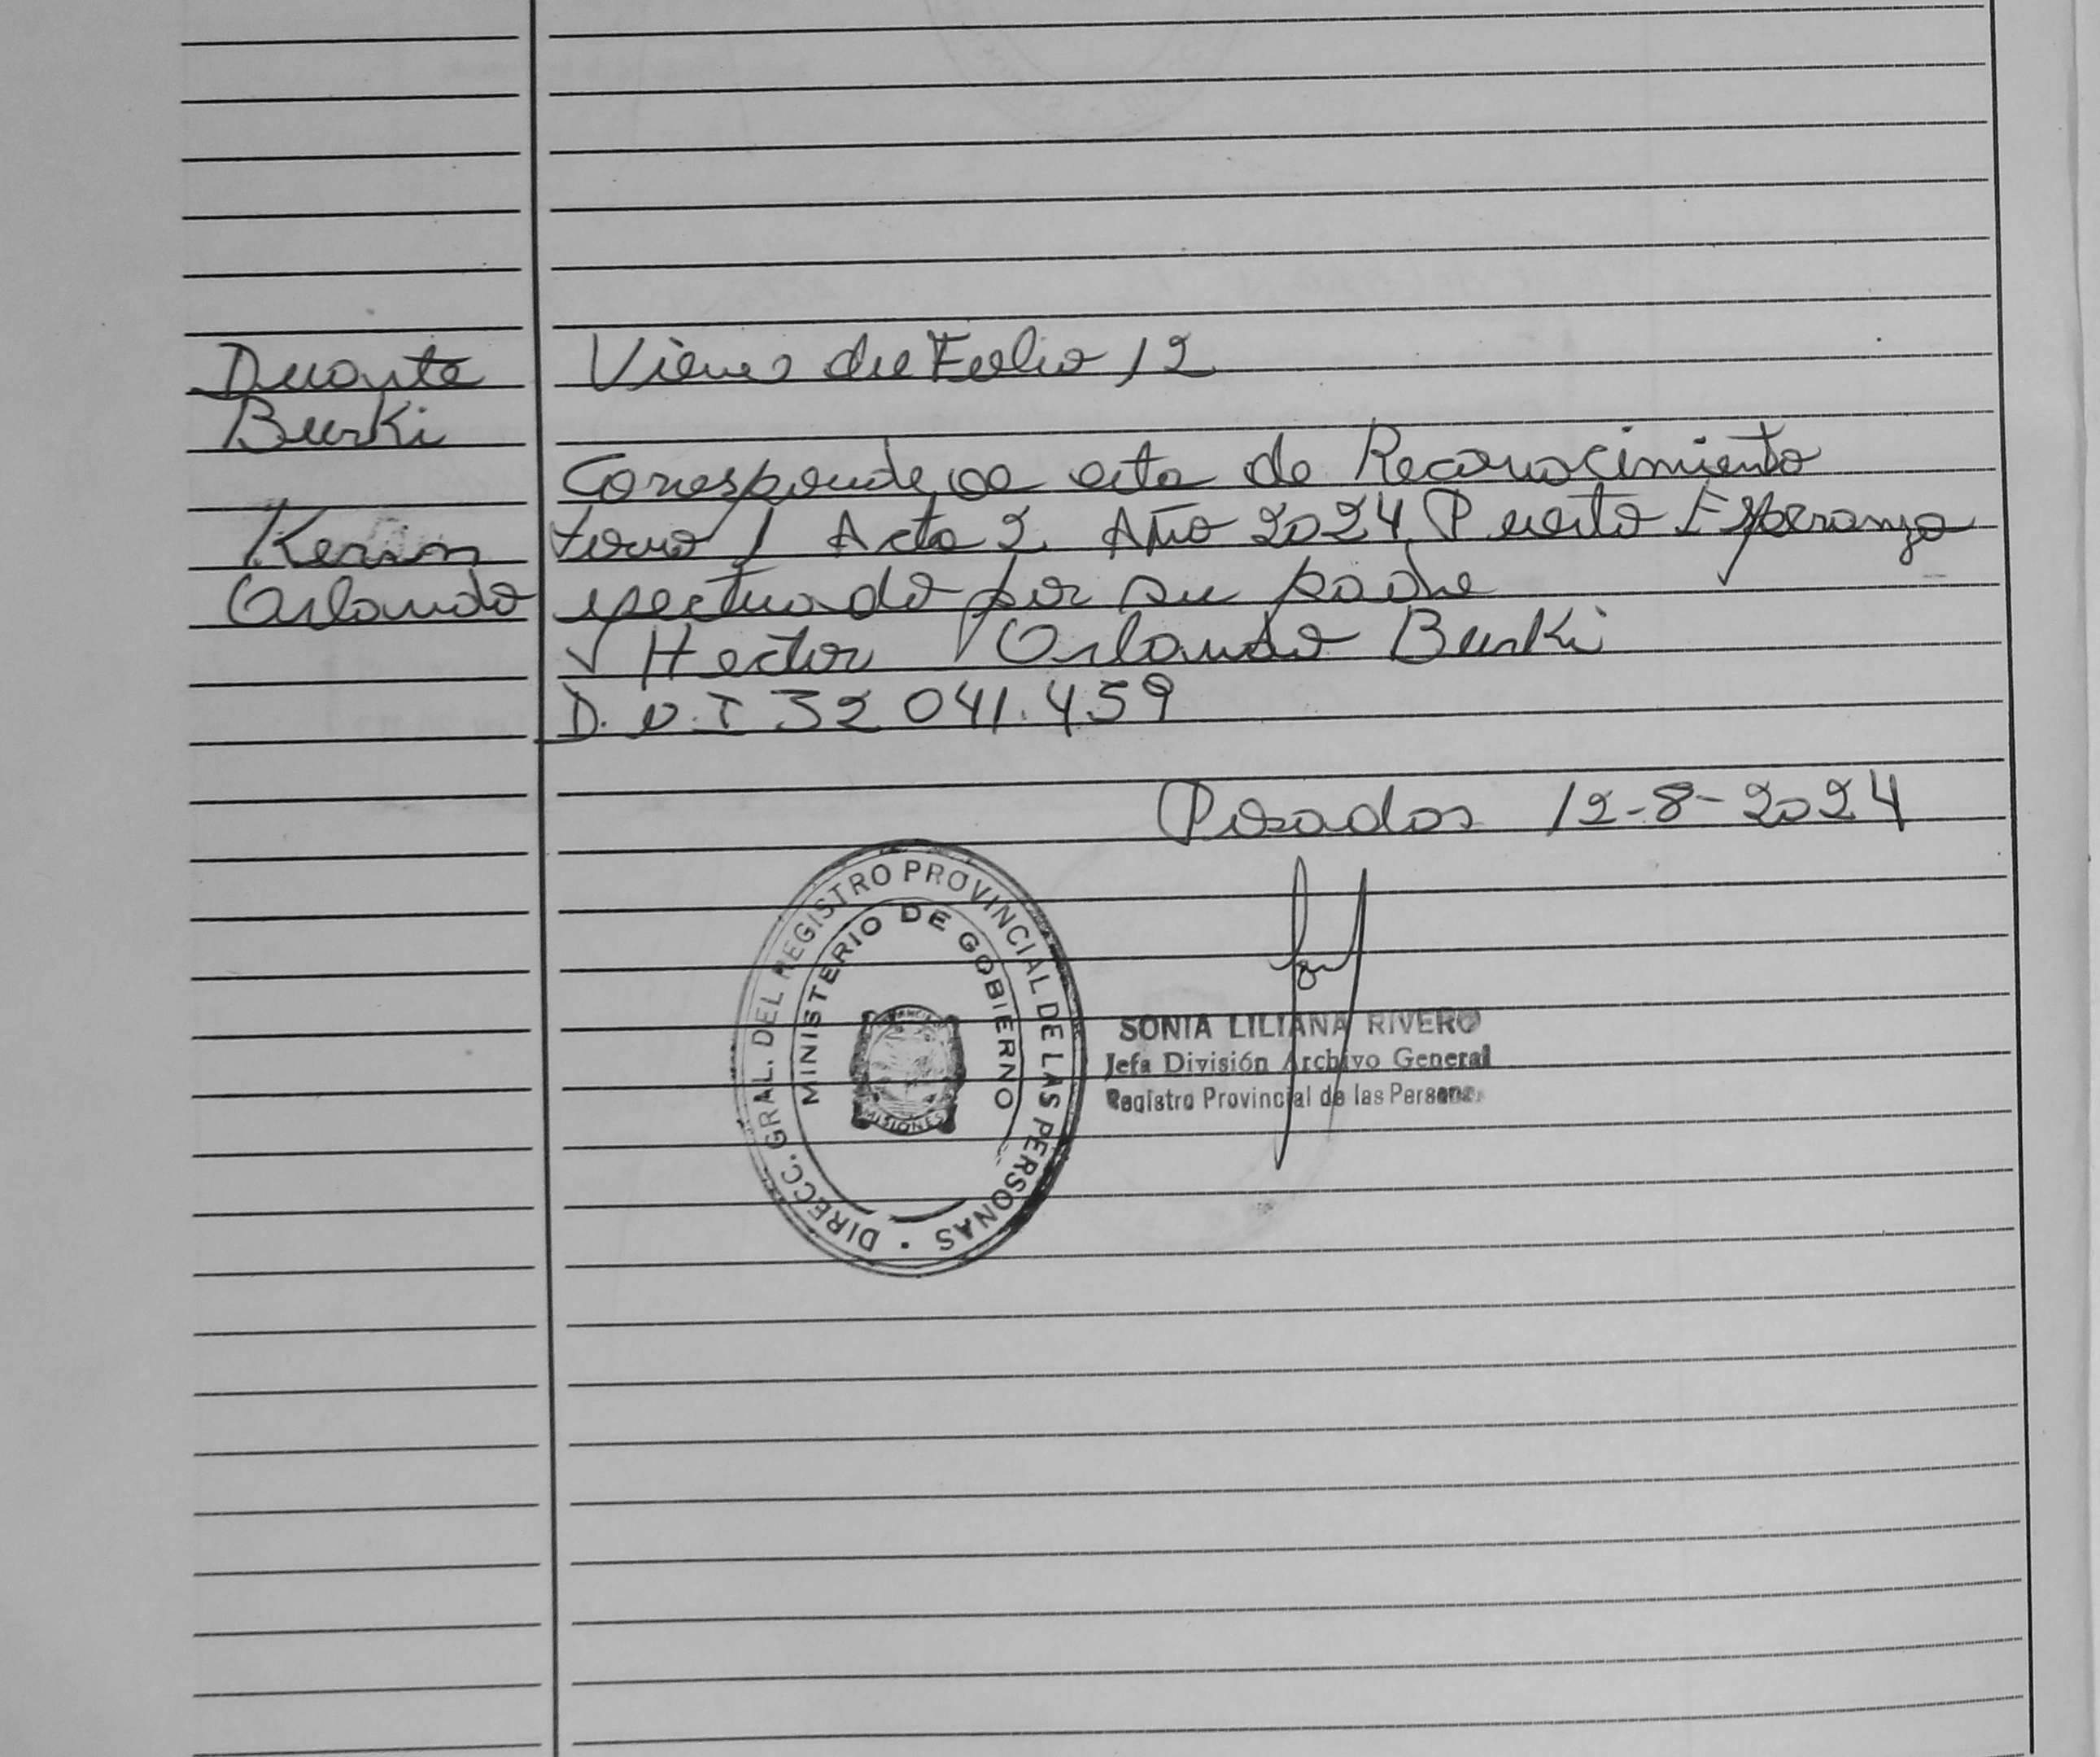 Duarte
Burki
Kevin
Orlando
Viene de Folio 12
Corresponde a acta de Reconocimiento
tomo 1 Acta 2 Año 2024 Puerto Esperanza
efectuado por su padre
Hector Orlando Burki
D.N.I 32 041.459
Posadas 12-8-2024
DIRECC. GRAL. DEL REGISTRO PROVINCIAL DE LAS PERSONAS
MINISTERIO DE GOBIERNO
MISIONES
SONIA LILIANA RIVERO
Jefa División Archivo General
Registro Provincial de las Personas